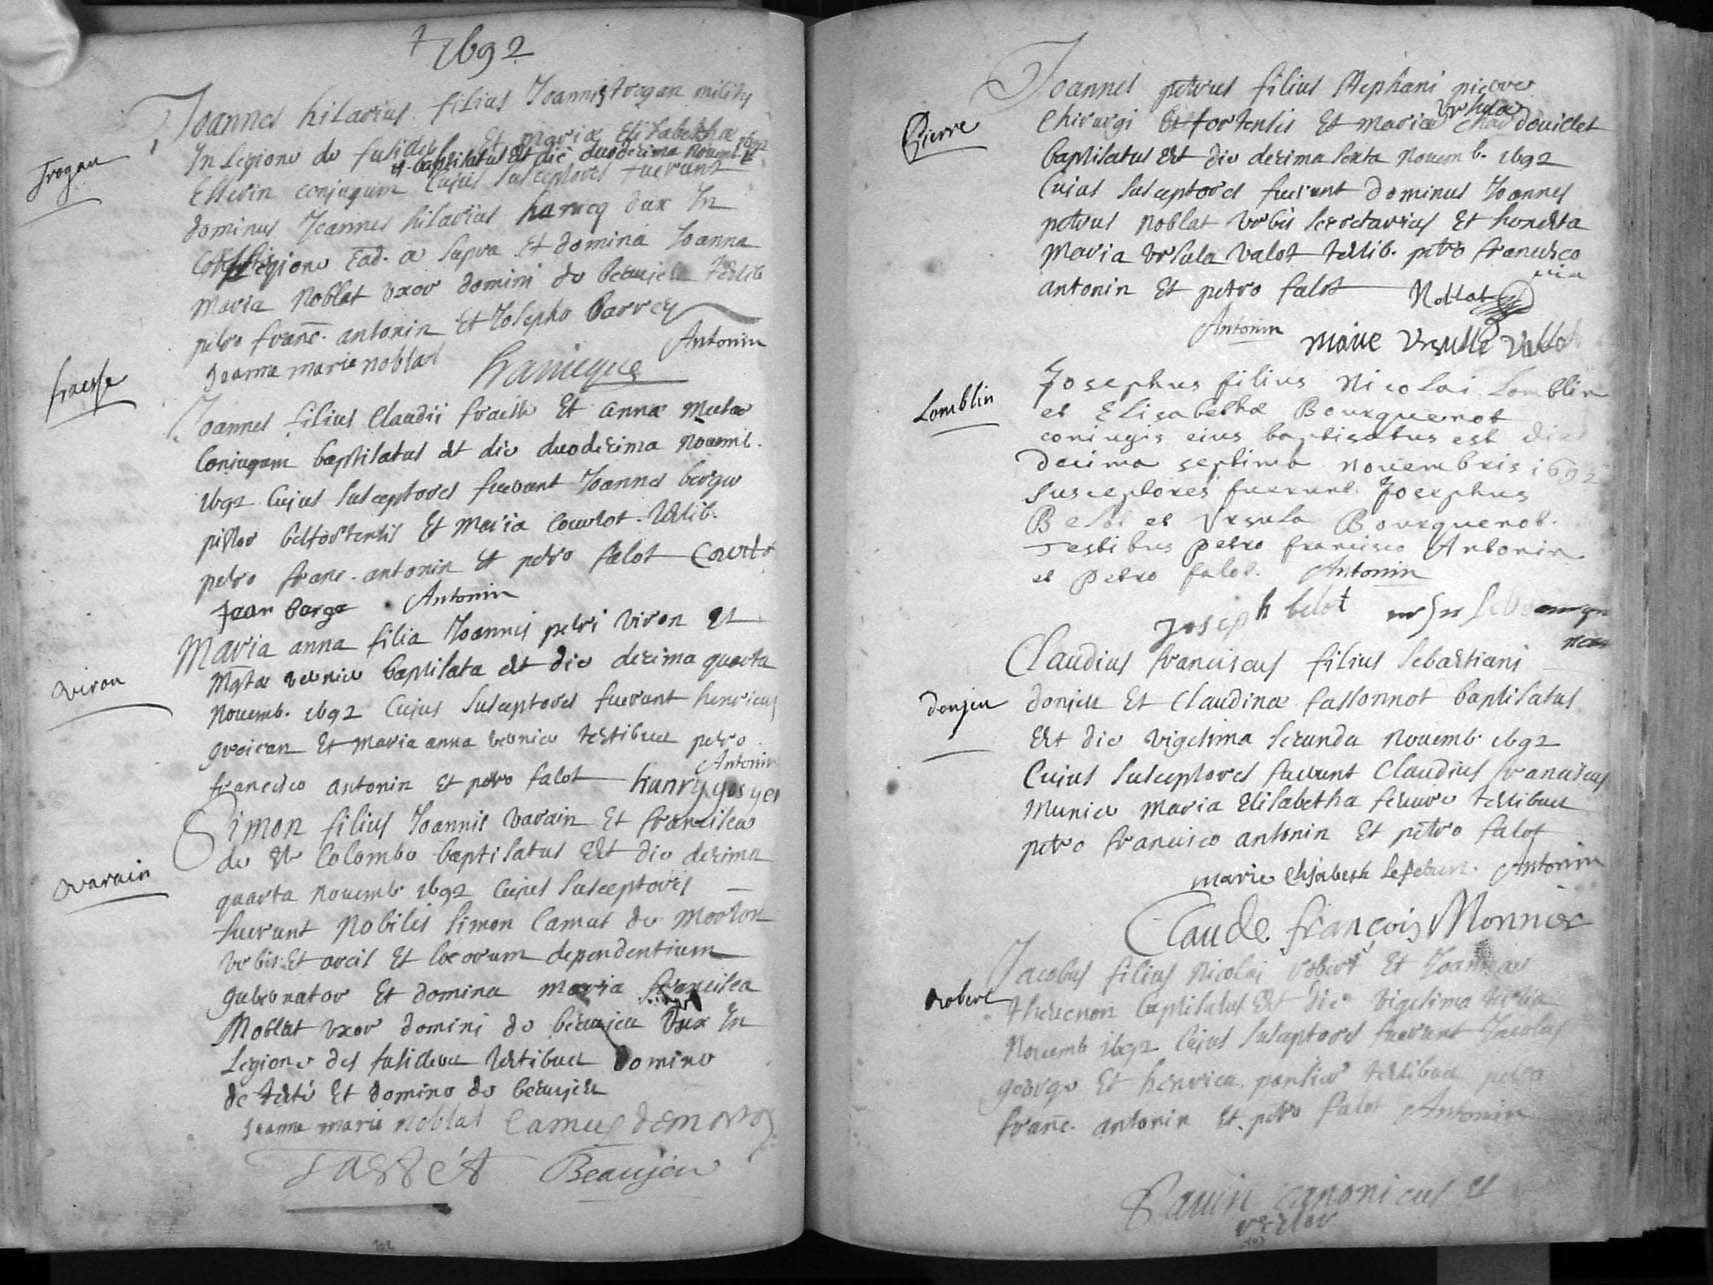 1692
Trogan
Joannes hilarius filius Joannis trogan militis
In Legione de fusiliers Et mariæ Elisabethæ
et baptisatus est die duodecima Novemb. 1692
Estevin conjugum Cujus susceptores fuerunt
dominus Joannes hilarius harueq dux In
Legione Ead. a supra Et domina Joanna
Maria Noblat uxor domini de beaujeu testib
petro franc. antonin Et Josepho barrey
Joanna marie noblat hanicque Antonin
fraesse
Joannes filius Claudii fraesse Et annæ
Conjugum baptisatus est die duodecima Novemb.
1692 Cujus susceptores fuerunt Joannes barge
pistor belfortensis Et Maria Courtot. testib.
petro franc. antonin Et petro falot Courtot
Jean barge Antonin
viron
Maria anna filia Joannis petri viron Et
baptisata est die decima quarta
Novemb. 1692 Cujus susceptores fuerunt henricus
Et Maria anna testibus petro
francisco antonin Et petro falot Antonin
hanry
varain
Simon filius Joannis varain Et franciscæ
de Ste Colombe baptisatus Est die decima
quarta Novemb. 1692 Cujus susceptores
fuerunt Nobilis Simon Camut de Morton
Urbis Et arcis Et locorum dependentium
gubernator Et domina maria francisca
Noblat uxor domini de beaujeu Dux In
Legione des fusiliers testibus Domino
de tasté Et domino de beaujeu
Joanne marie noblat Camus demorton
Beaujeu
Pierre
Joannes petrus filius Stephani pierre
Chirurgi belfortensis Et Mariæ Ursulæ douillet
baptisatus Est die decima sexta Novemb. 1692
Cujus susceptores fuerunt dominus Joannes
petrus Noblat Urbis secretarius Et honesta
Maria Ursula Valot testib. petro francisco
antonin Et petro falot Noblat
Antonin marie Ursulle Vallot
Lomblin
Josephus filius Nicolai Lomblin
et Elisabethæ Bourquenot
coniugis eius baptisatus est die
decima septima novembris 1692
Susceptores fuerunt Josephus
Belot et Ursula Bourquenot.
Testibus petro francisco Antonin
et petro falot. Antonin
Joseph belot
donjeu
Claudius franciscus filius Sebastiani
donjeu Et Claudinæ fassonnot baptisatus
Est die vigesima secunda Novemb. 1692
Cujus susceptores fuerunt Claudius franciscus
Munier Maria Elisabetha testibus
petro francisco antonin Et petro falot
marie elisabeth Lefebure. Antonin
Claude françois Monnier
Robert
Jacobus filius Nicolai robert Et Joannæ
thevenon baptisatus Est die vigesima tertia
Novemb 1692 Cujus susceptores fuerunt Jacobus
george Et henrica testibus petro
franc. antonin Et petro falot Antonin
canonicus et
rector